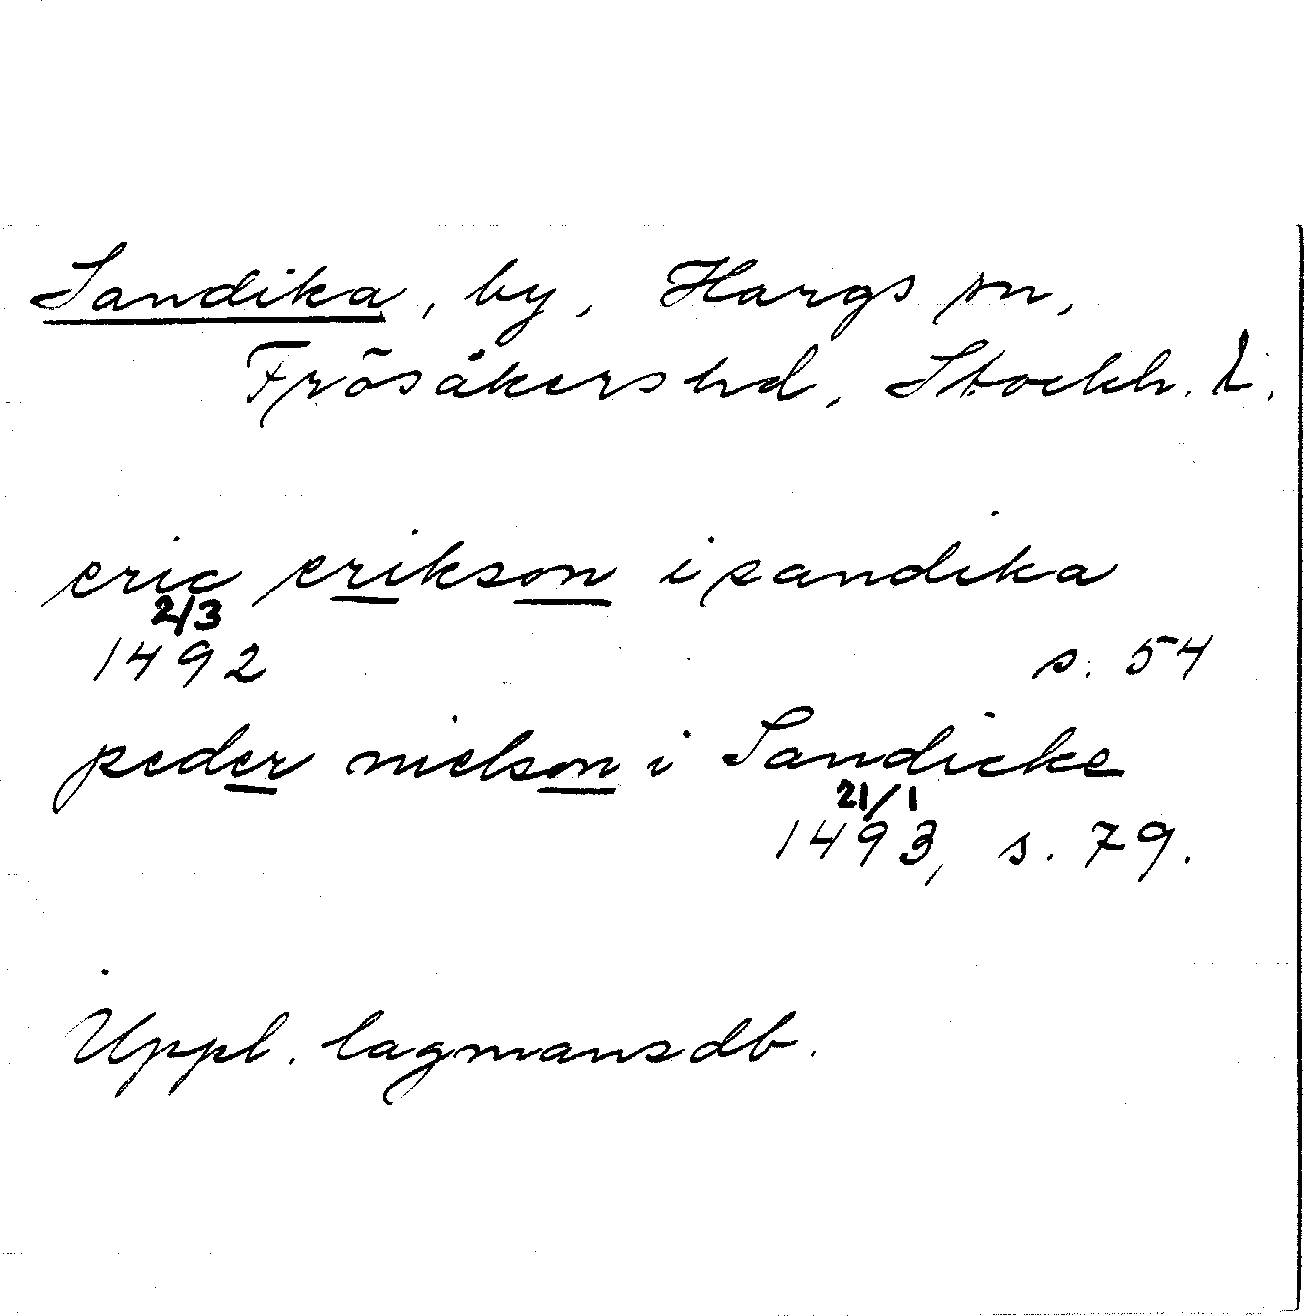 Sandika, by, Hargs sn,
Frösåkers hd, Stockh. L.
eric erikson i sandika
2/3
1492 s. 54
peder nielson i Sandicke
21/1
1493, s. 79.
Uppl. lagmansdb.